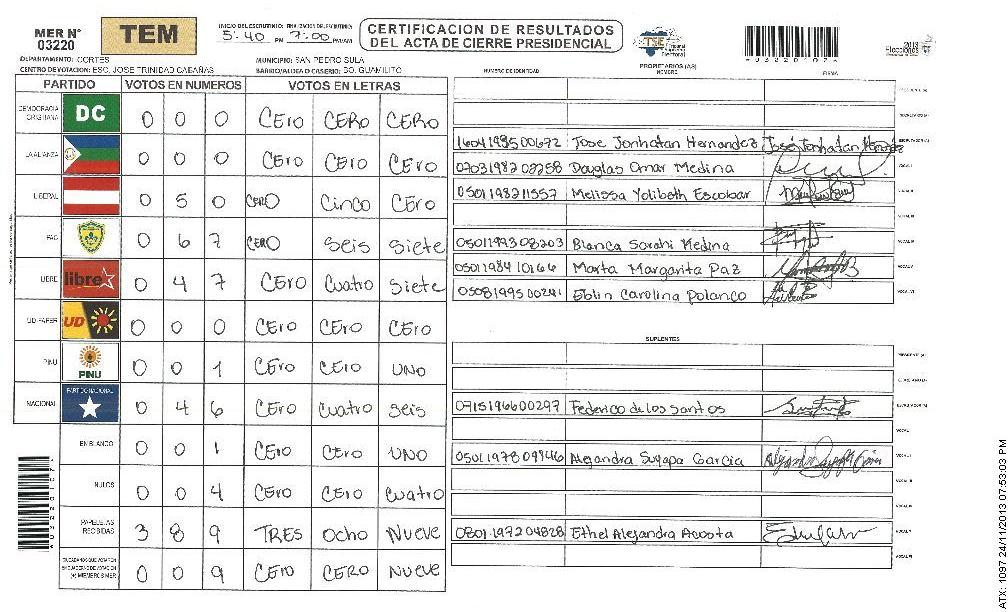 MER N° 03220
TEM
INICIO DEL ESCRUTINIO: FINALIZACION DEL ESCRUTINIO:
5:40 PM 7:00 PM/AM
CERTIFICACION DE RESULTADOS
DEL ACTA DE CIERRE PRESIDENCIAL
TSE Tribunal Supremo Electoral
2013 Elecciones
DEPARTAMENTO: CORTES
MUNICIPIO: SAN PEDRO SULA
CENTRO DE VOTACION: ESC. JOSE TRINIDAD CABAÑAS
BARRIO/ALDEA O CASERIO: BO. GUAMILITO
PARTIDO VOTOS EN NUMEROS VOTOS EN LETRAS
DEMOCRACIA CRISTIANA DC 0 0 0 CEro CERO CERO
LA ALIANZA 0 0 0 CEro CEro CEro
LIBERAL 0 5 0 CERO Cinco CEro
PAC 0 6 7 CERO Seis Siete
LIBRE libre 0 4 7 CEro Cuatro Siete
UD-FAPER UD 0 0 0 CEro CEro CEro
PINU PINU 0 0 1 CEro CEro UNO
NACIONAL PARTIDO NACIONAL 0 4 6 CEro Cuatro Seis
EN BLANCO 0 0 1 CEro CEro UNO
NULOS 0 0 4 CEro CEro Cuatro
PAPELETAS RECIBIDAS 3 8 9 TRES Ocho Nueve
0 0 9 CEro CERO Nueve
NUMERO DE IDENTIDAD PROPIETARIOS (AS) NOMBRE FIRMA
1604198500672 Jose Jonhatan Hernandez José Jonhatan Hernandez
0703198202258 Douglas Omar Medina
0501198211557 Melissa Yolibeth Escobar
0501199308203 Blanca Sarahi Medina
0501198410166 Marta Margarita Paz
0508199500241 Eblin Carolina Polanco
SUPLENTES
0715196600297 Federico de los Santos
0501197809946 Alejandra Suyapa Garcia
0801197204828 Ethel Alejandra Acosta
ATX: 1097 24/11/2013 07:53:03 PM